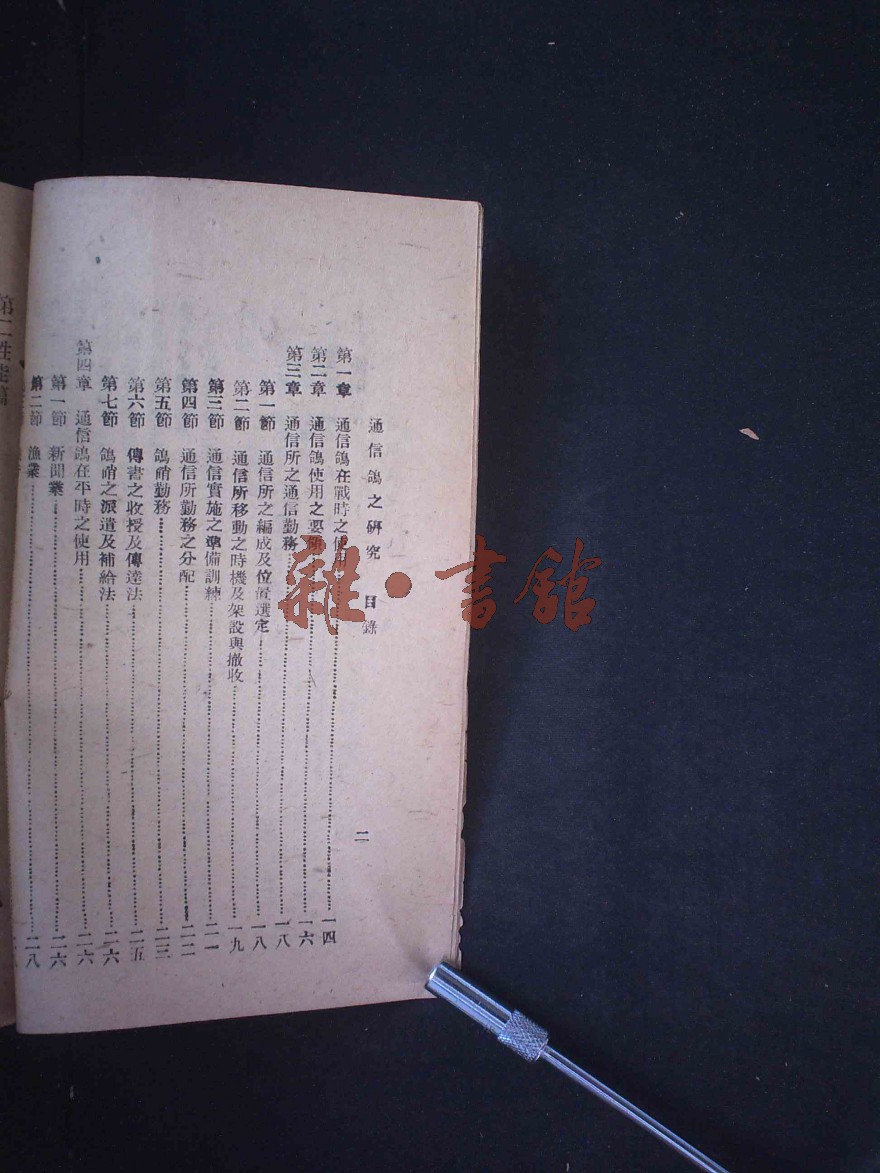 通信鴿之研究 目錄 二
第一章 通信鴿在戰時之使用 一四
第二章 通信鴿使用之要領 一六
第三章 通信所之通信勤務 一八
第一節 通信所之編成及位置選定 一八
第二節 通信所移動之時機及架設與撤收 一九
第三節 通信實施之準備訓練 二一
第四節 通信所勤務之分配 二二
第五節 鴿哨勤務 二三
第六節 傳書之收授及傳達法 二五
第七節 鴿哨之派遣及補給法 二六
第四章 通信鴿在平時之使用 二六
第一節 新聞業 二六
第二節 漁業 二八
第二性能篇
雜·書館